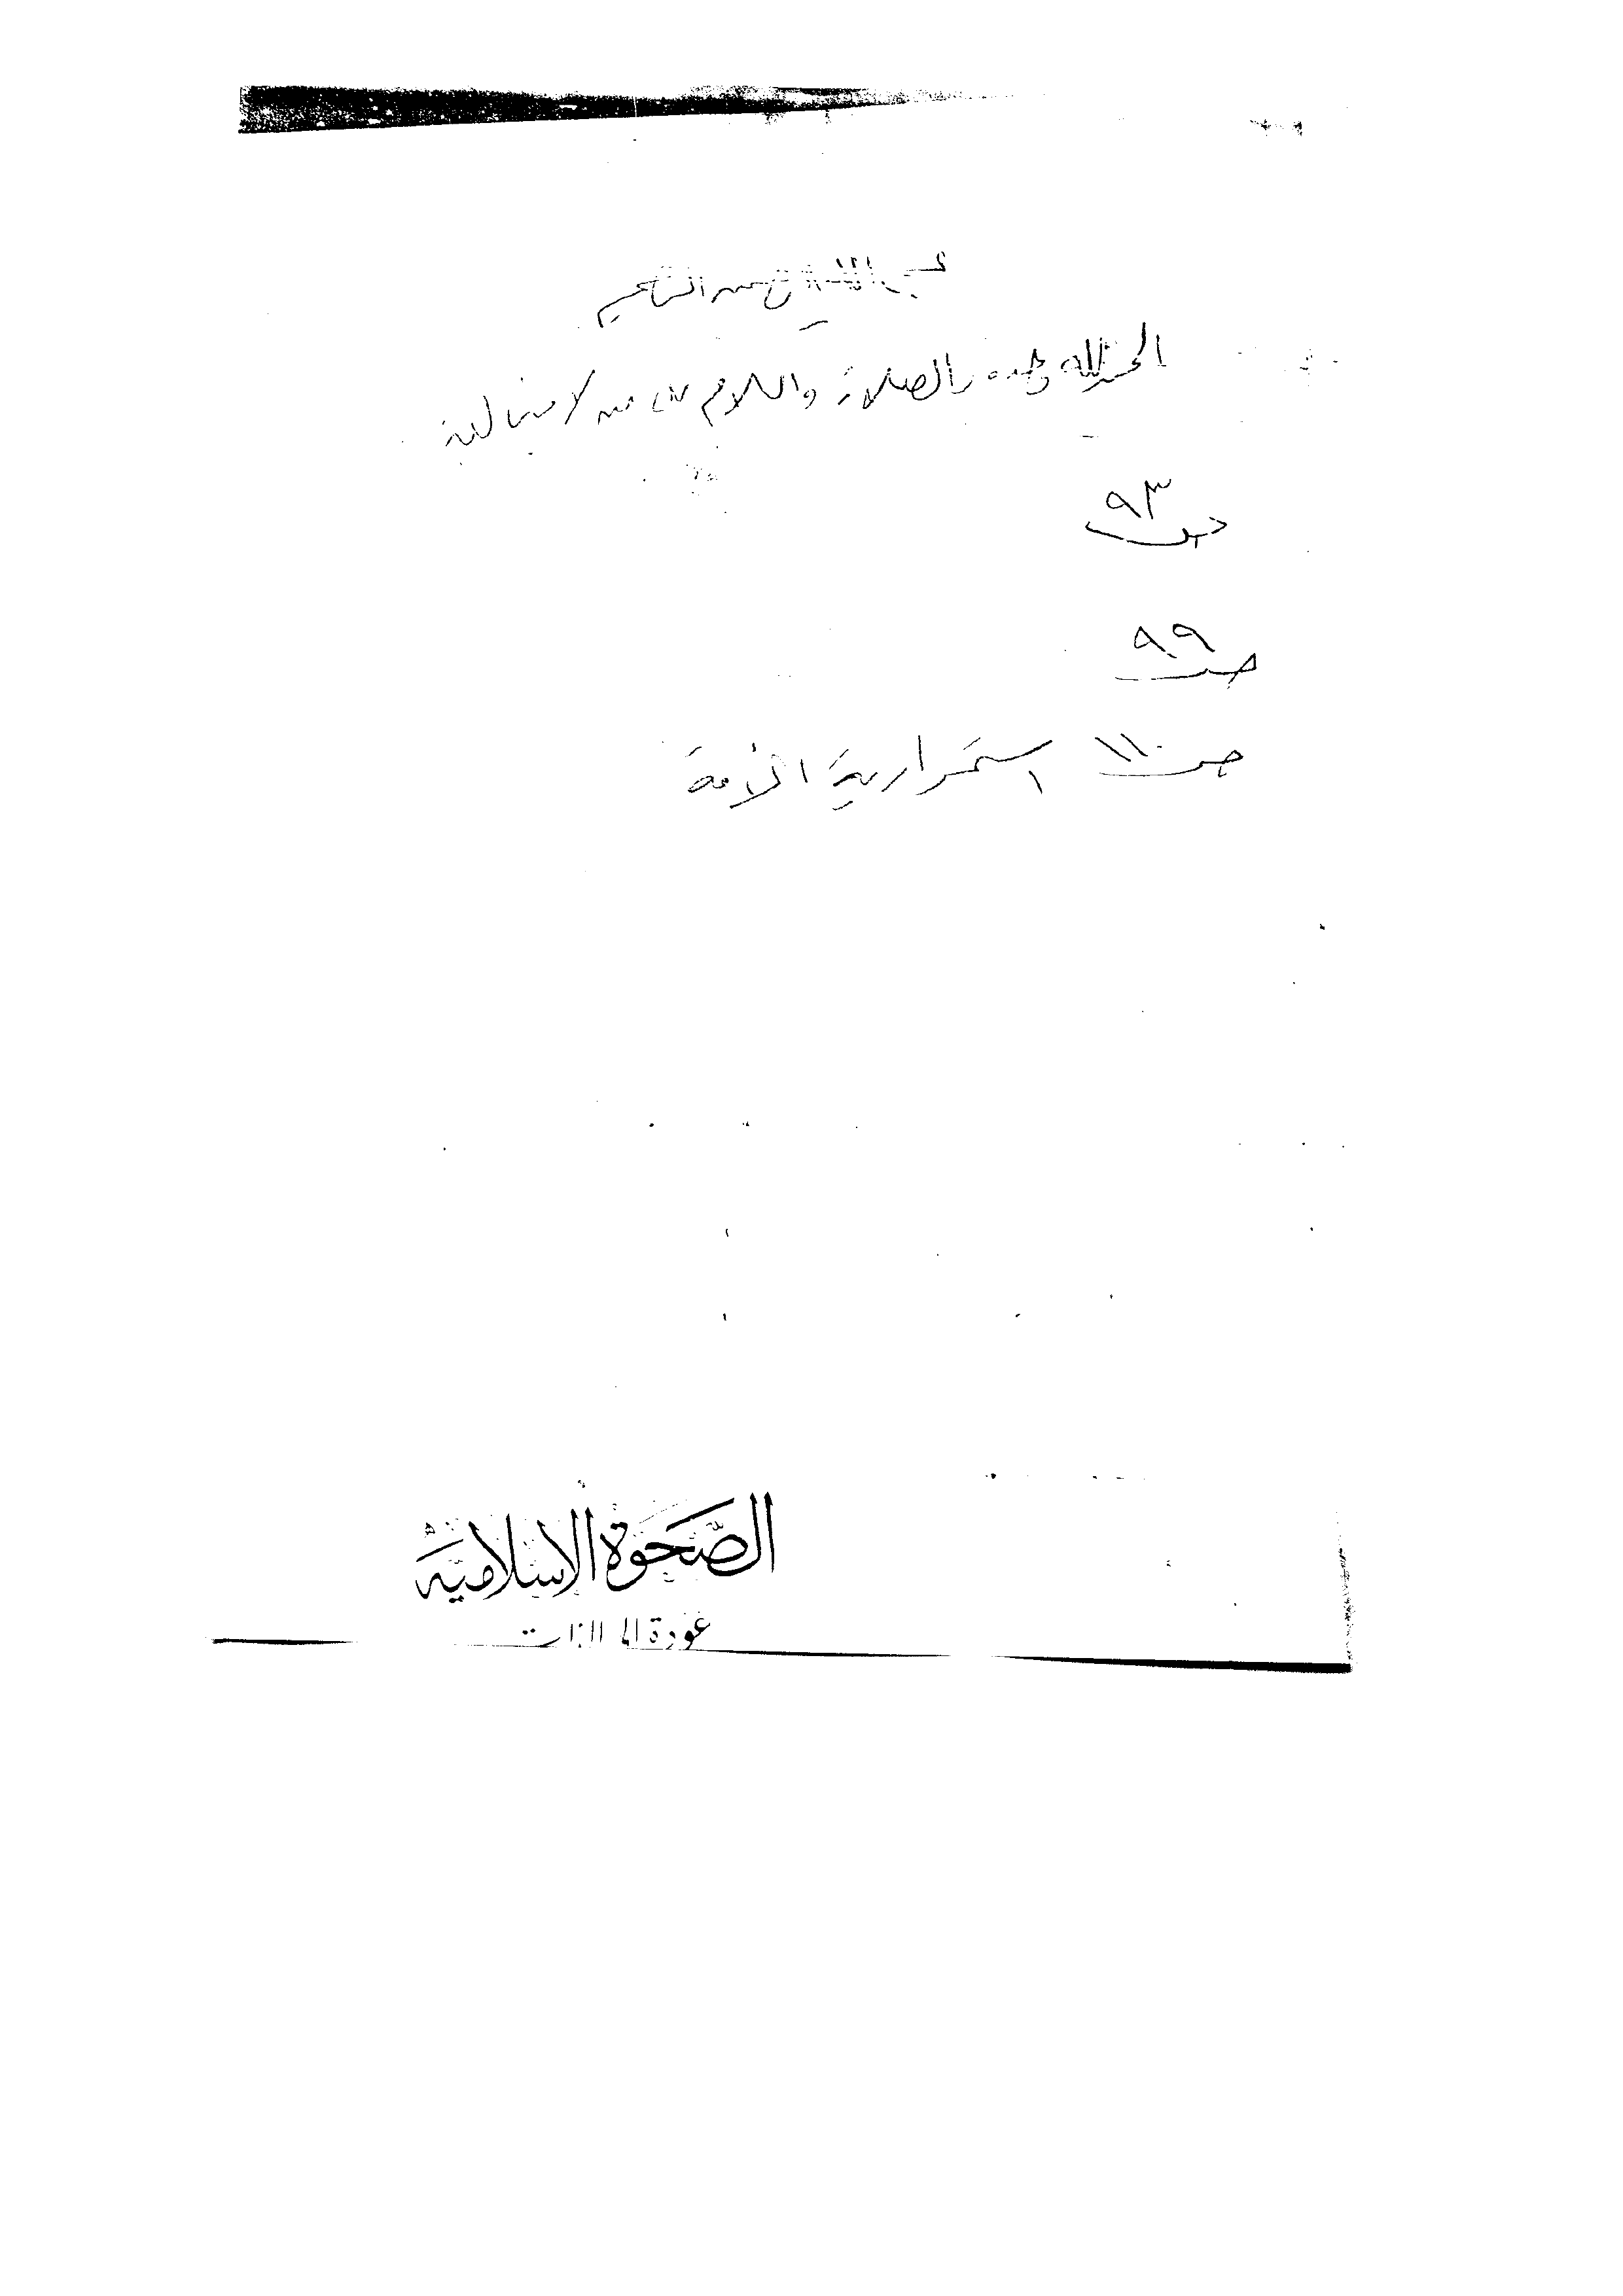 بسم الله الرحمن الرحيم
الحمد لله وحده والصلاة والسلام على من لا نبي بعده
ص ٩٣
ص ٩٩
ص ١١٠ استمرارية الأمة
الصَّحوَة الإسلاميَّة
عودة إلى الذات